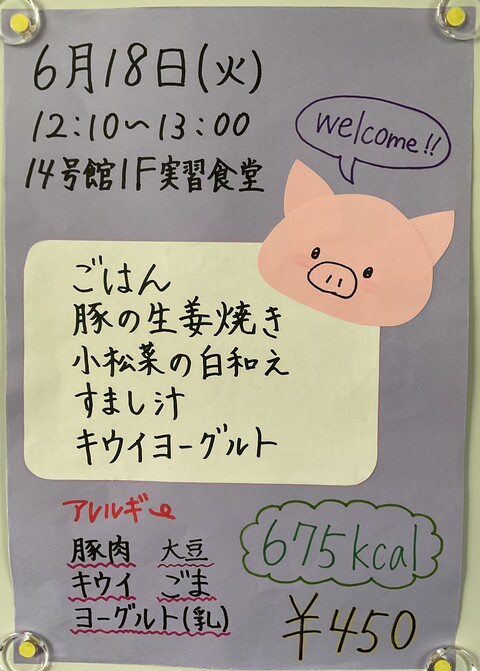 6月18日(火)
12:10～13:00
14号館1F実習食堂
welcome!!
ごはん
豚の生姜焼き
小松菜の白和え
すまし汁
キウイヨーグルト
アレルギー
豚肉 大豆
キウイ ごま
ヨーグルト(乳)
675kcal
¥450